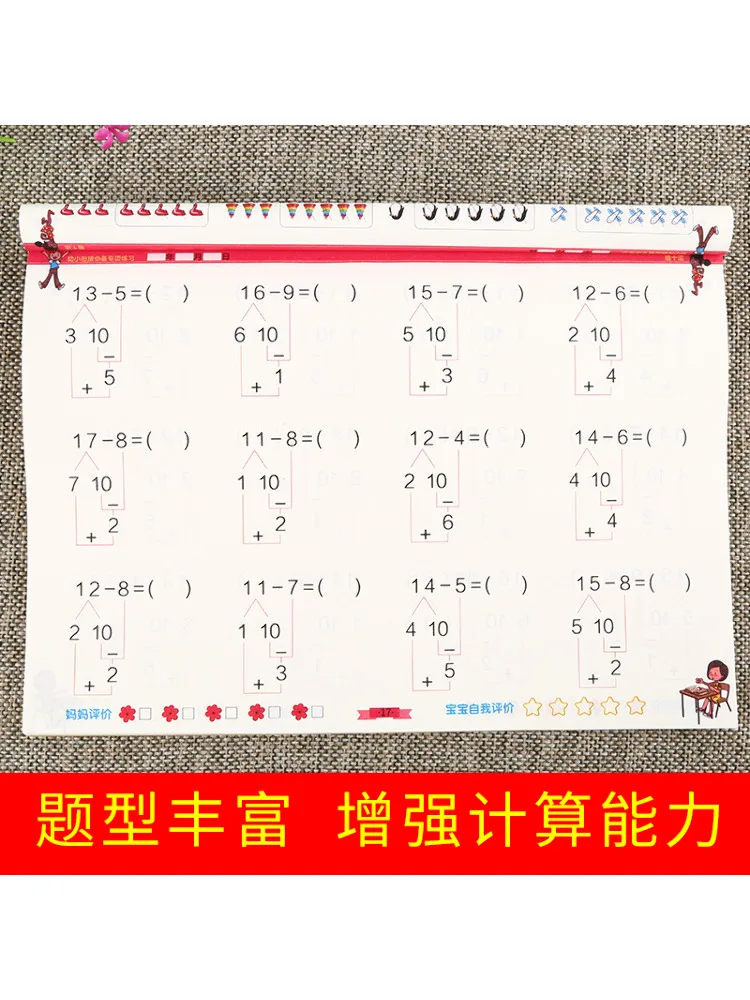 幼小衔接必备专项练习 年 月 日
13-5=( ) 16-9=( ) 15-7=( ) 12-6=( )
3 10 6 10 5 10 2 10
− − − −
5 1 3 4
+ + + +
17-8=( ) 11-8=( ) 12-4=( ) 14-6=( )
7 10 1 10 2 10 4 10
− − − −
2 2 6 4
+ + + +
12-8=( ) 11-7=( ) 14-5=( ) 15-8=( )
2 10 1 10 4 10 5 10
− − − −
2 3 5 2
+ + + +
妈妈评价 ·17· 宝宝自我评价
题型丰富 增强计算能力